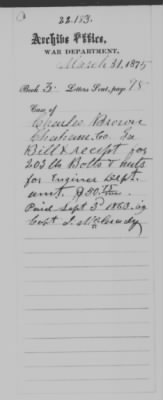 22.183.
Archive Office,
WAR DEPARTMENT,
March 31, 1875
Book 3. Letters Sent, page 98
Case of
Charles Brown
Chatham Co. Ga
Bill & receipt for
203 lbs Bolts & nuts
for Engineer Dept.
amt.
Paid Sept 3d 1863 by
Capt J. McCrady